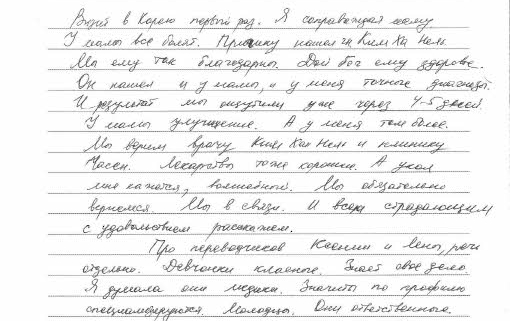 в Корею первый раз. Я сопровождая маму
У мамы все болит. Причину нашел Ким Ха Нель.
Мы ему так благодарны. Дай бог ему здоровье.
Он нашел и у мамы, и у меня точные диагнозы.
И результат мы ощутили уже через 4-5 дней.
У мамы улучшение. А у меня тем более.
Мы верим врачу Ким Хан Нель и клинику
Часен. Лекарствы тоже хорошие. А укол
мне кажется, волшебный. Мы обязательно
вернемся. Мы в связи. И всем страдающим
с удовольствием расскажем.
Про переводчиков Ксении и Лены, речь
отдельно. Девчонки классные. Знает свое дело.
Я думала они медики. Значить по профилю
специализируются. Молодцы. Они ответственные.